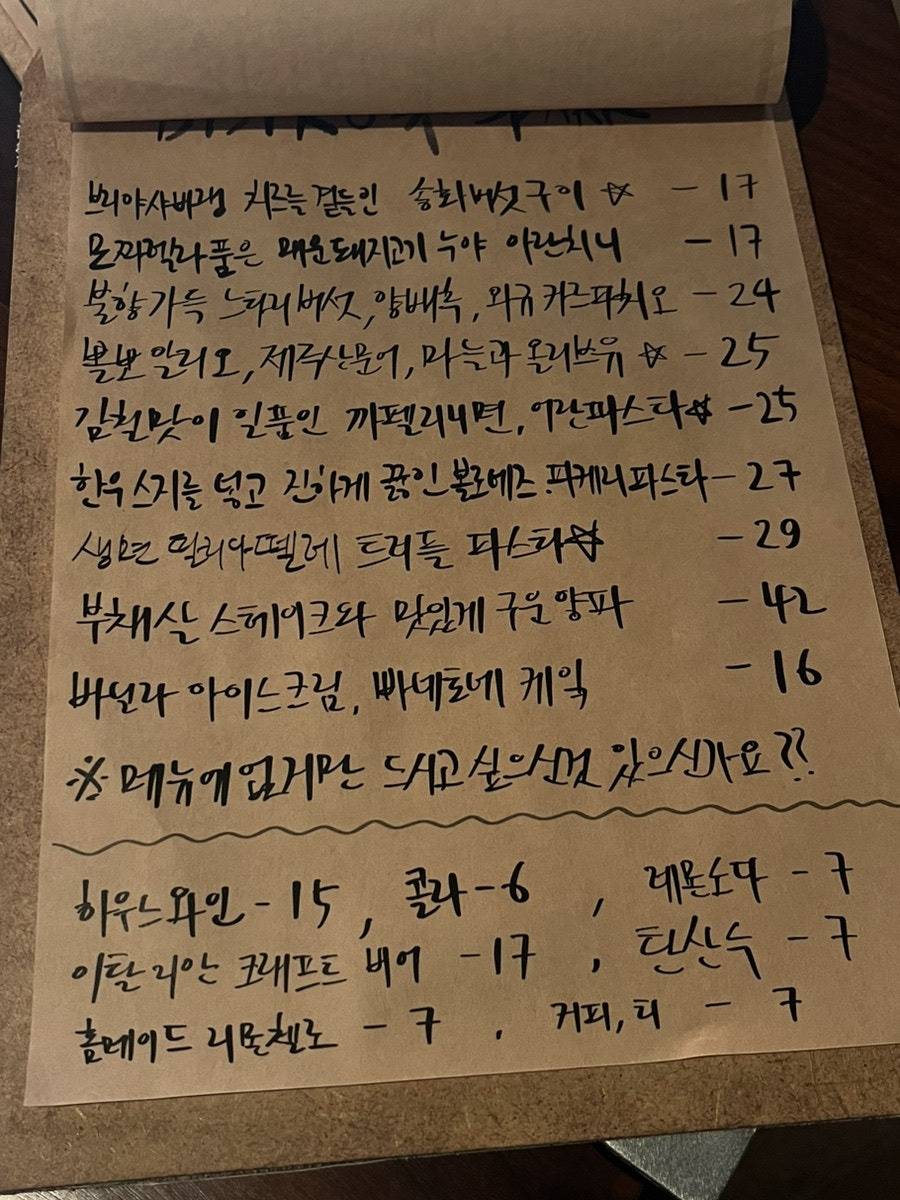 브리야사바랭 치즈를 곁들인 송화버섯구이 ☆ - 17
모짜렐라 품은 매운돼지고기 누야 아란치니 - 17
불향가득 느타리버섯, 양배추, 와규 카르파치오 - 24
뽈뽀 알리오, 제주산문어, 마늘과 올리브유 ☆ - 25
감칠맛이 일품인 까펠리니면, 어란파스타☆ - 25
한우 스지를 넣고 진하게 끓인 볼로네즈. 파케니파스타 - 27
생면 딸리아뗄레 트러플 파스타☆ - 29
부채살 스테이크와 맛있게 구운양파 - 42
바닐라 아이스크림, 빠네토네 케익 - 16
※ 메뉴에 없지만 드시고 싶으신것 있으신가요??
하우스와인 - 15, 콜라 - 6, 레몬소다 - 7
이탈리안 크래프트 비어 - 17, 탄산수 - 7
홈메이드 리몬첼로 - 7, 커피, 티 - 7